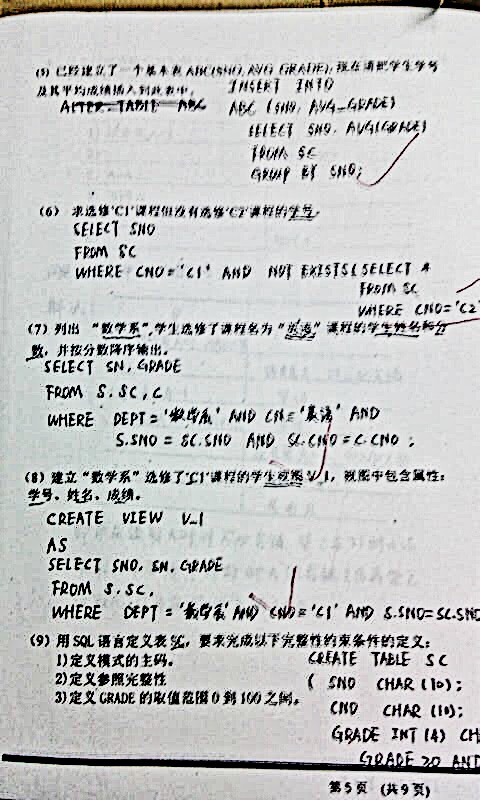 (5) 已经建立了一个基本表 ABC(SNO, AVG_GRADE), 现在请把学生学号
及其平均成绩插入到此表中。 INSERT INTO
ALTER TABLE ABC ABC (SNO, AVG_GRADE)
SELECT SNO, AVG(GRADE)
FROM SC
GROUP BY SNO;
(6) 求选修‘C1’课程但没有选修‘C2’课程的学号
SELECT SNO
FROM SC
WHERE CNO='C1' AND NOT EXISTS( SELECT *
FROM SC
WHERE CNO='C2'
(7) 列出 “数学系”学生选修了课程名为“英语”课程的学生姓名和分
数，并按分数降序输出。
SELECT SN, GRADE
FROM S, SC, C
WHERE DEPT='数学系' AND CN='英语' AND
S.SNO = SC.SNO AND SC.CNO = C.CNO ;
(8) 建立“数学系”选修了‘C1’课程的学生视图 V_1，视图中包含属性：
学号、姓名、成绩。
CREATE VIEW V_1
AS
SELECT SNO, SN, GRADE
FROM S, SC,
WHERE DEPT='数学系' AND CNO='C1' AND S.SNO=SC.SNO
(9) 用 SQL 语言定义表 SC，要求完成以下完整性约束条件的定义：
1)定义模式的主码。 CREATE TABLE SC
2)定义参照完整性 ( SNO CHAR (10);
3)定义 GRADE 的取值范围 0 到 100 之间。 CNO CHAR (10);
GRADE INT (4) CH
GRADE ≥0 AND
第 5 页 (共 9 页)